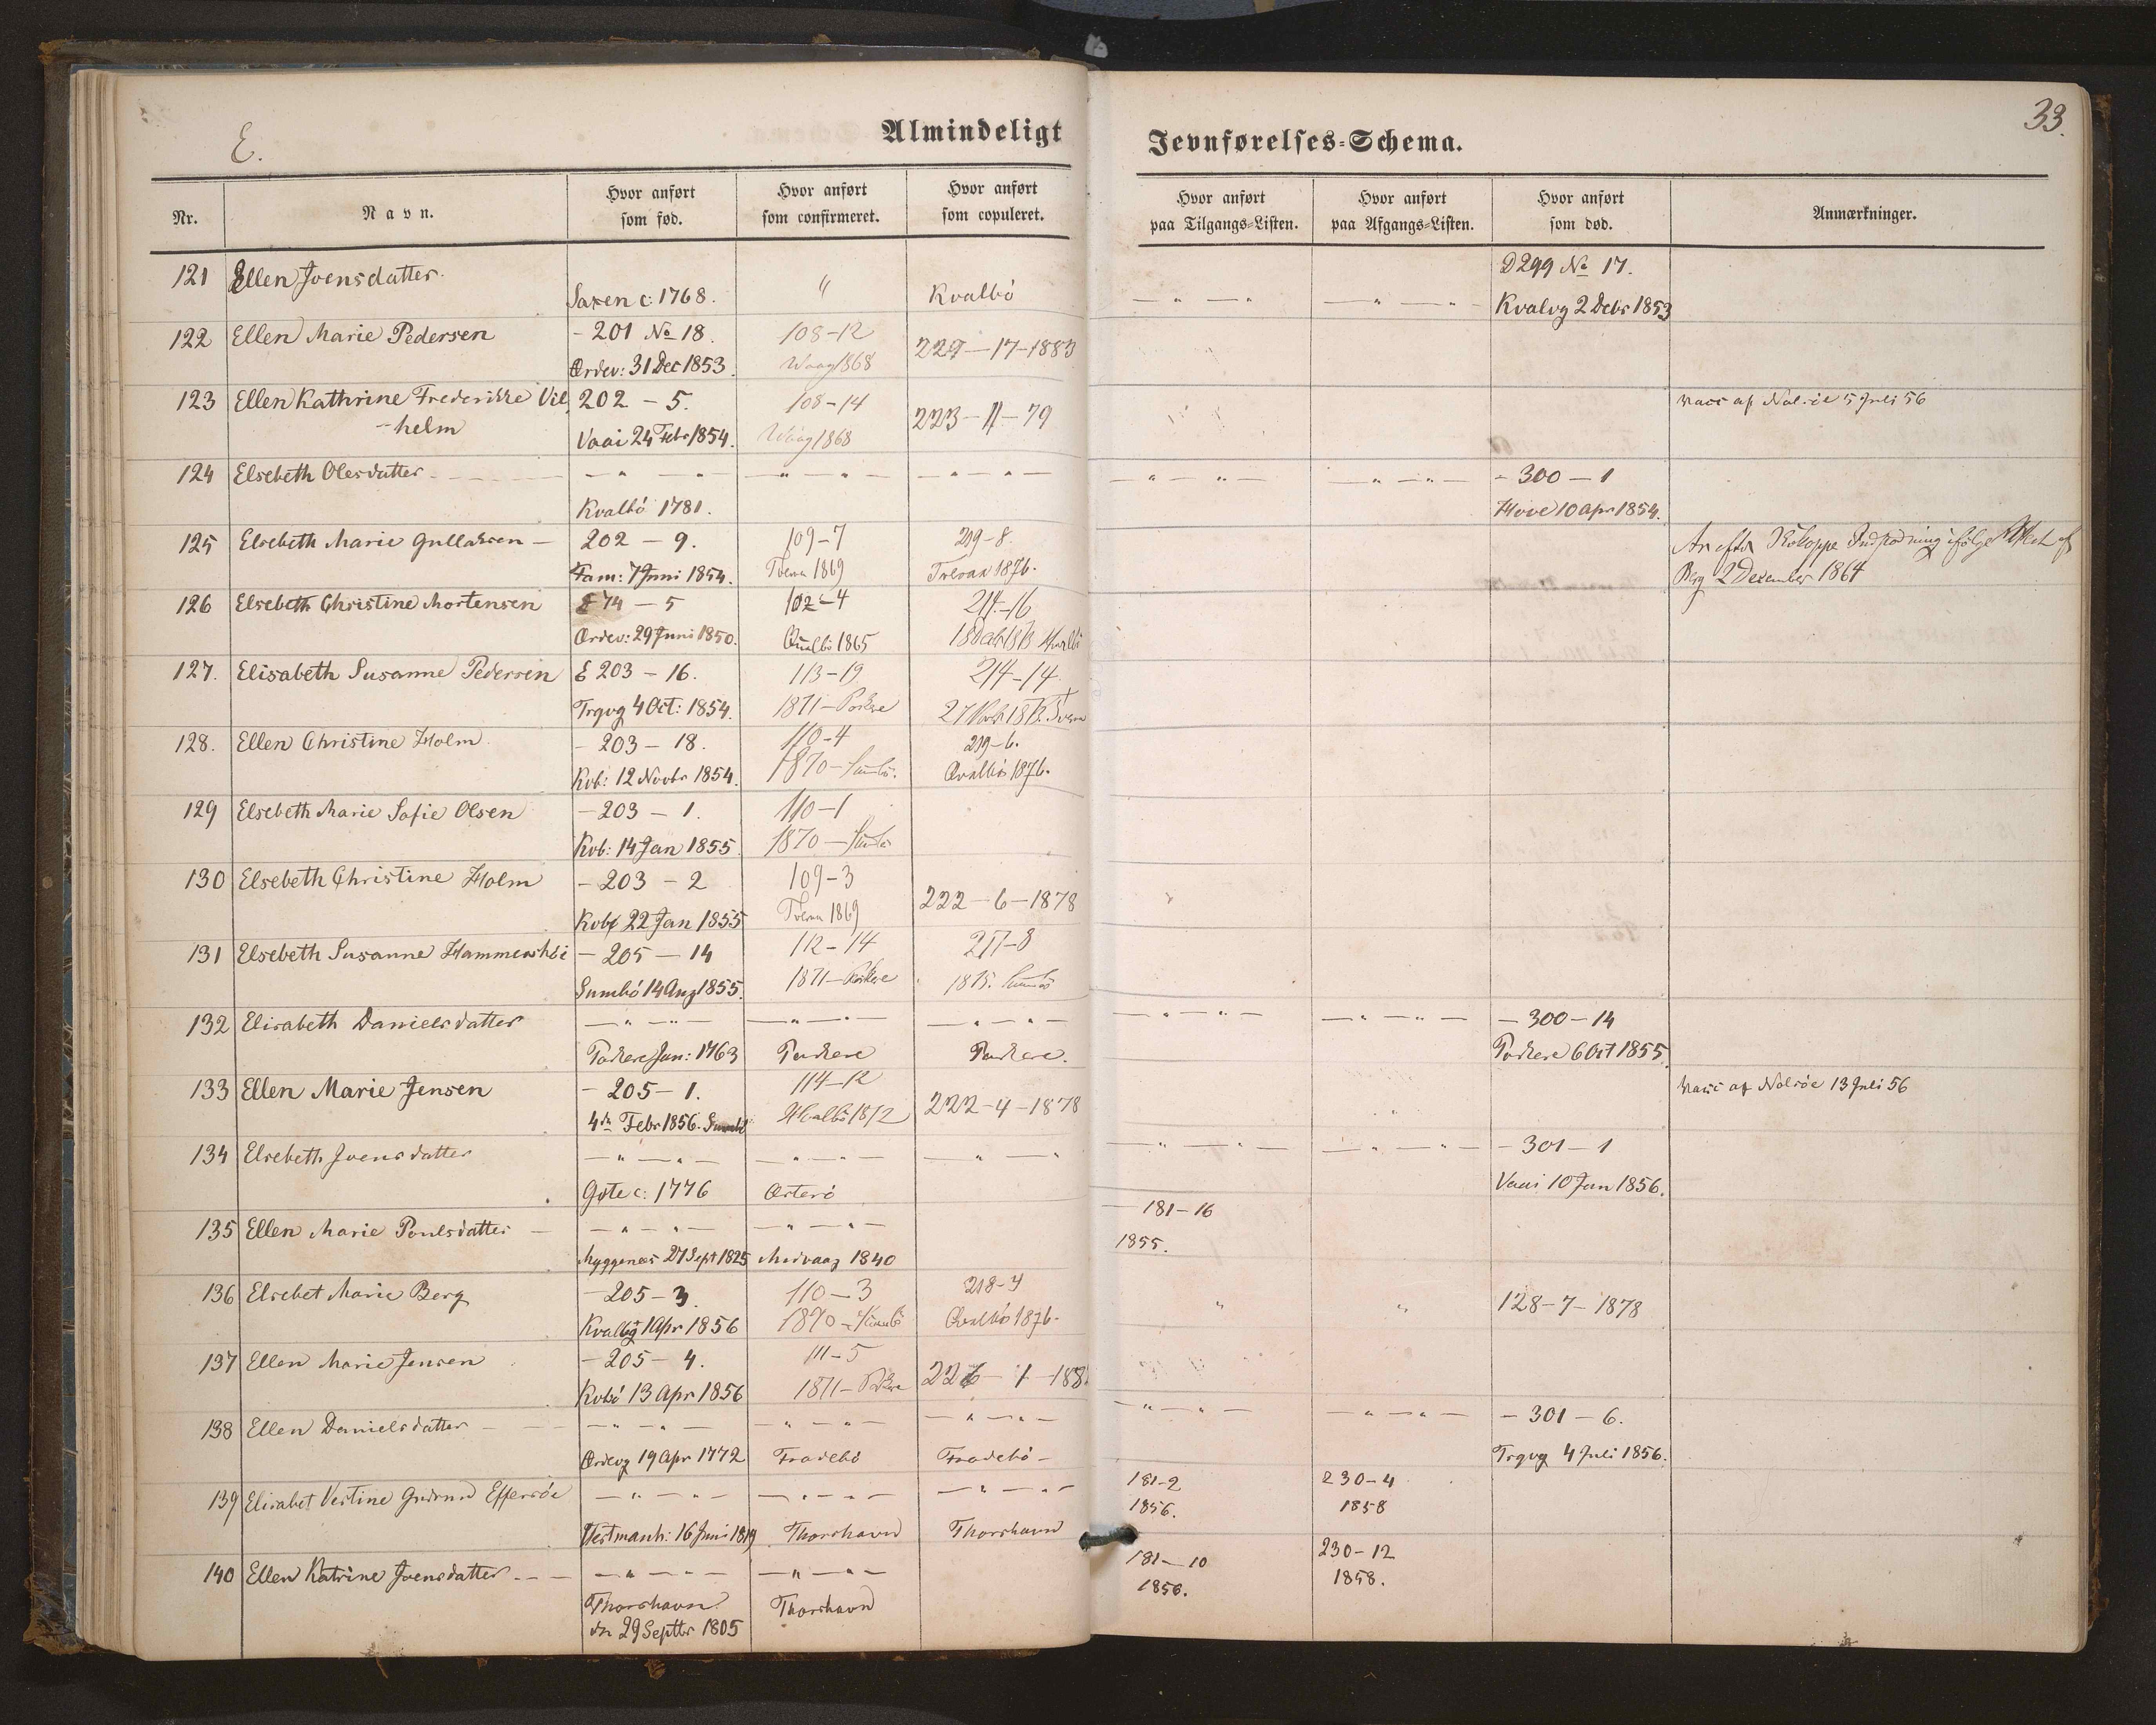 E.
Almindeligt Jevnførelses-Schema.
33.
Nr. Navn. Hvor anført som fød. Hvor anført som confirmeret. Hvor anført som copuleret. Hvor anført paa Tilgangs-Listen. Hvor anført paa Afgangs-Listen. Hvor anført som død. Anmærkninger.
121 Ellen Joensdatter. D 299 No 17.
Saxen c: 1768. " Kvalbö — " — " — " — " — Kvalvg 2 Debr 1853
122 Ellen Marie Pedersen - 201 No 18. 108-12 229-17-1883
Ördev: 31 Dec 1853. Waag 1868
123 Ellen Kathrine Frederikke Vil 202 - 5. 108-14 223-11-79 vacc af Nolsöe 5 Juli 56
-helm Vaai 24 Febr 1854. Waag 1868
124 Elsebeth Olesdatter — " — " — " — " — " — " — " — " — " — " — - 300 - 1
Kvalbö 1781. Hove 10 Apr 1854.
125 Elsebeth Marie Gullaksen - 202 - 9. 109-7 219-8. Kokoppe Indpodning ifølge Attest af
Fam: 7 Juni 1854. Tveraa 1869 Tveraa 1876. Berg 2 December 1864
126 Elsebeth Christine Mortensen 74 - 5 102-4 214-16
Ördev: 29 Juni 1850. Qualbö 1865
127. Elisabeth Susanne Pedersen E 203 - 16. 113-19 214-14
Trgvg 4 Oct: 1854. 1871 - Porkere
128. Ellen Christine Holm - 203 - 18. 110-4 219-6.
Kvb: 12 Novbr 1854. 1870 - Sumbö. Qvalbö 1876.
129 Elsebeth Marie Sofie Olsen - 203 - 1. 110-1
Kvb: 14 Jan 1855. 1870 - Sumbö
130 Elsebeth Christine Holm - 203 - 2 109-3 222-6-1878
Kvb 22 Jan 1855 Tveraa 1869
131 Elsebeth Susanne Hammershöi - 205 - 14 112-14 217-8
Sumbö 14 Aug 1855. 1871 - Porkere 1875. Sumbö
132 Elisabeth Danielsdatter — " — " — " — " — " — " — " — " — " — " — - 300 - 14
Porkere Jan: 1763 Porkere Porkere. Porkere 6 Oct 1855.
133 Ellen Marie Jensen - 205 - 1. 114-12 222-4-1878 vacc af Nolsöe 13 Juli 56
4de Febr 1856. Sumbö Hvalbö 1872
134 Elsebeth Joensdatter — " — " — " — " — " — " — " — " — " — - 301 - 1
Gøte c: 1776 Österö Vaai 10 Jan 1856.
135 Ellen Marie Poulsdatter — " — " — " — " — 181-16
Myggenæs 27 Sept 1825 Midvaag 1840 1855.
136 Elsebet Marie Berg - 205 - 3. 110-3 218-4 " " 128-7-1878
Kvalbö 1 Apr 1856 1870 - Sumbö Qvalbö 1876.
137 Ellen Marie Jensen - 205 - 4. 111-5
Kvbö 13 Apr 1856 1871 - Porkere
138 Ellen Danielsdatter — " — " — " — " — " — " — " — " — " — " — - 301 - 6.
Ördevg 19 Apr 1772 Frodebö Frodebö - Trgvg 4 Juli 1856.
139 Elisabet Vestine Gudrun Effersöe — " — " — " — " — " — " — 181-2 230-4
Vestmanh: 16 Juni 1819 Thorshavn Thorshavn 1856. 1858
140 Ellen Katrine Joensdatter — " — " — " — " — 181-10 230-12
Thorshavn Thorshavn 1856. 1858.
dn 29 Septbr 1805